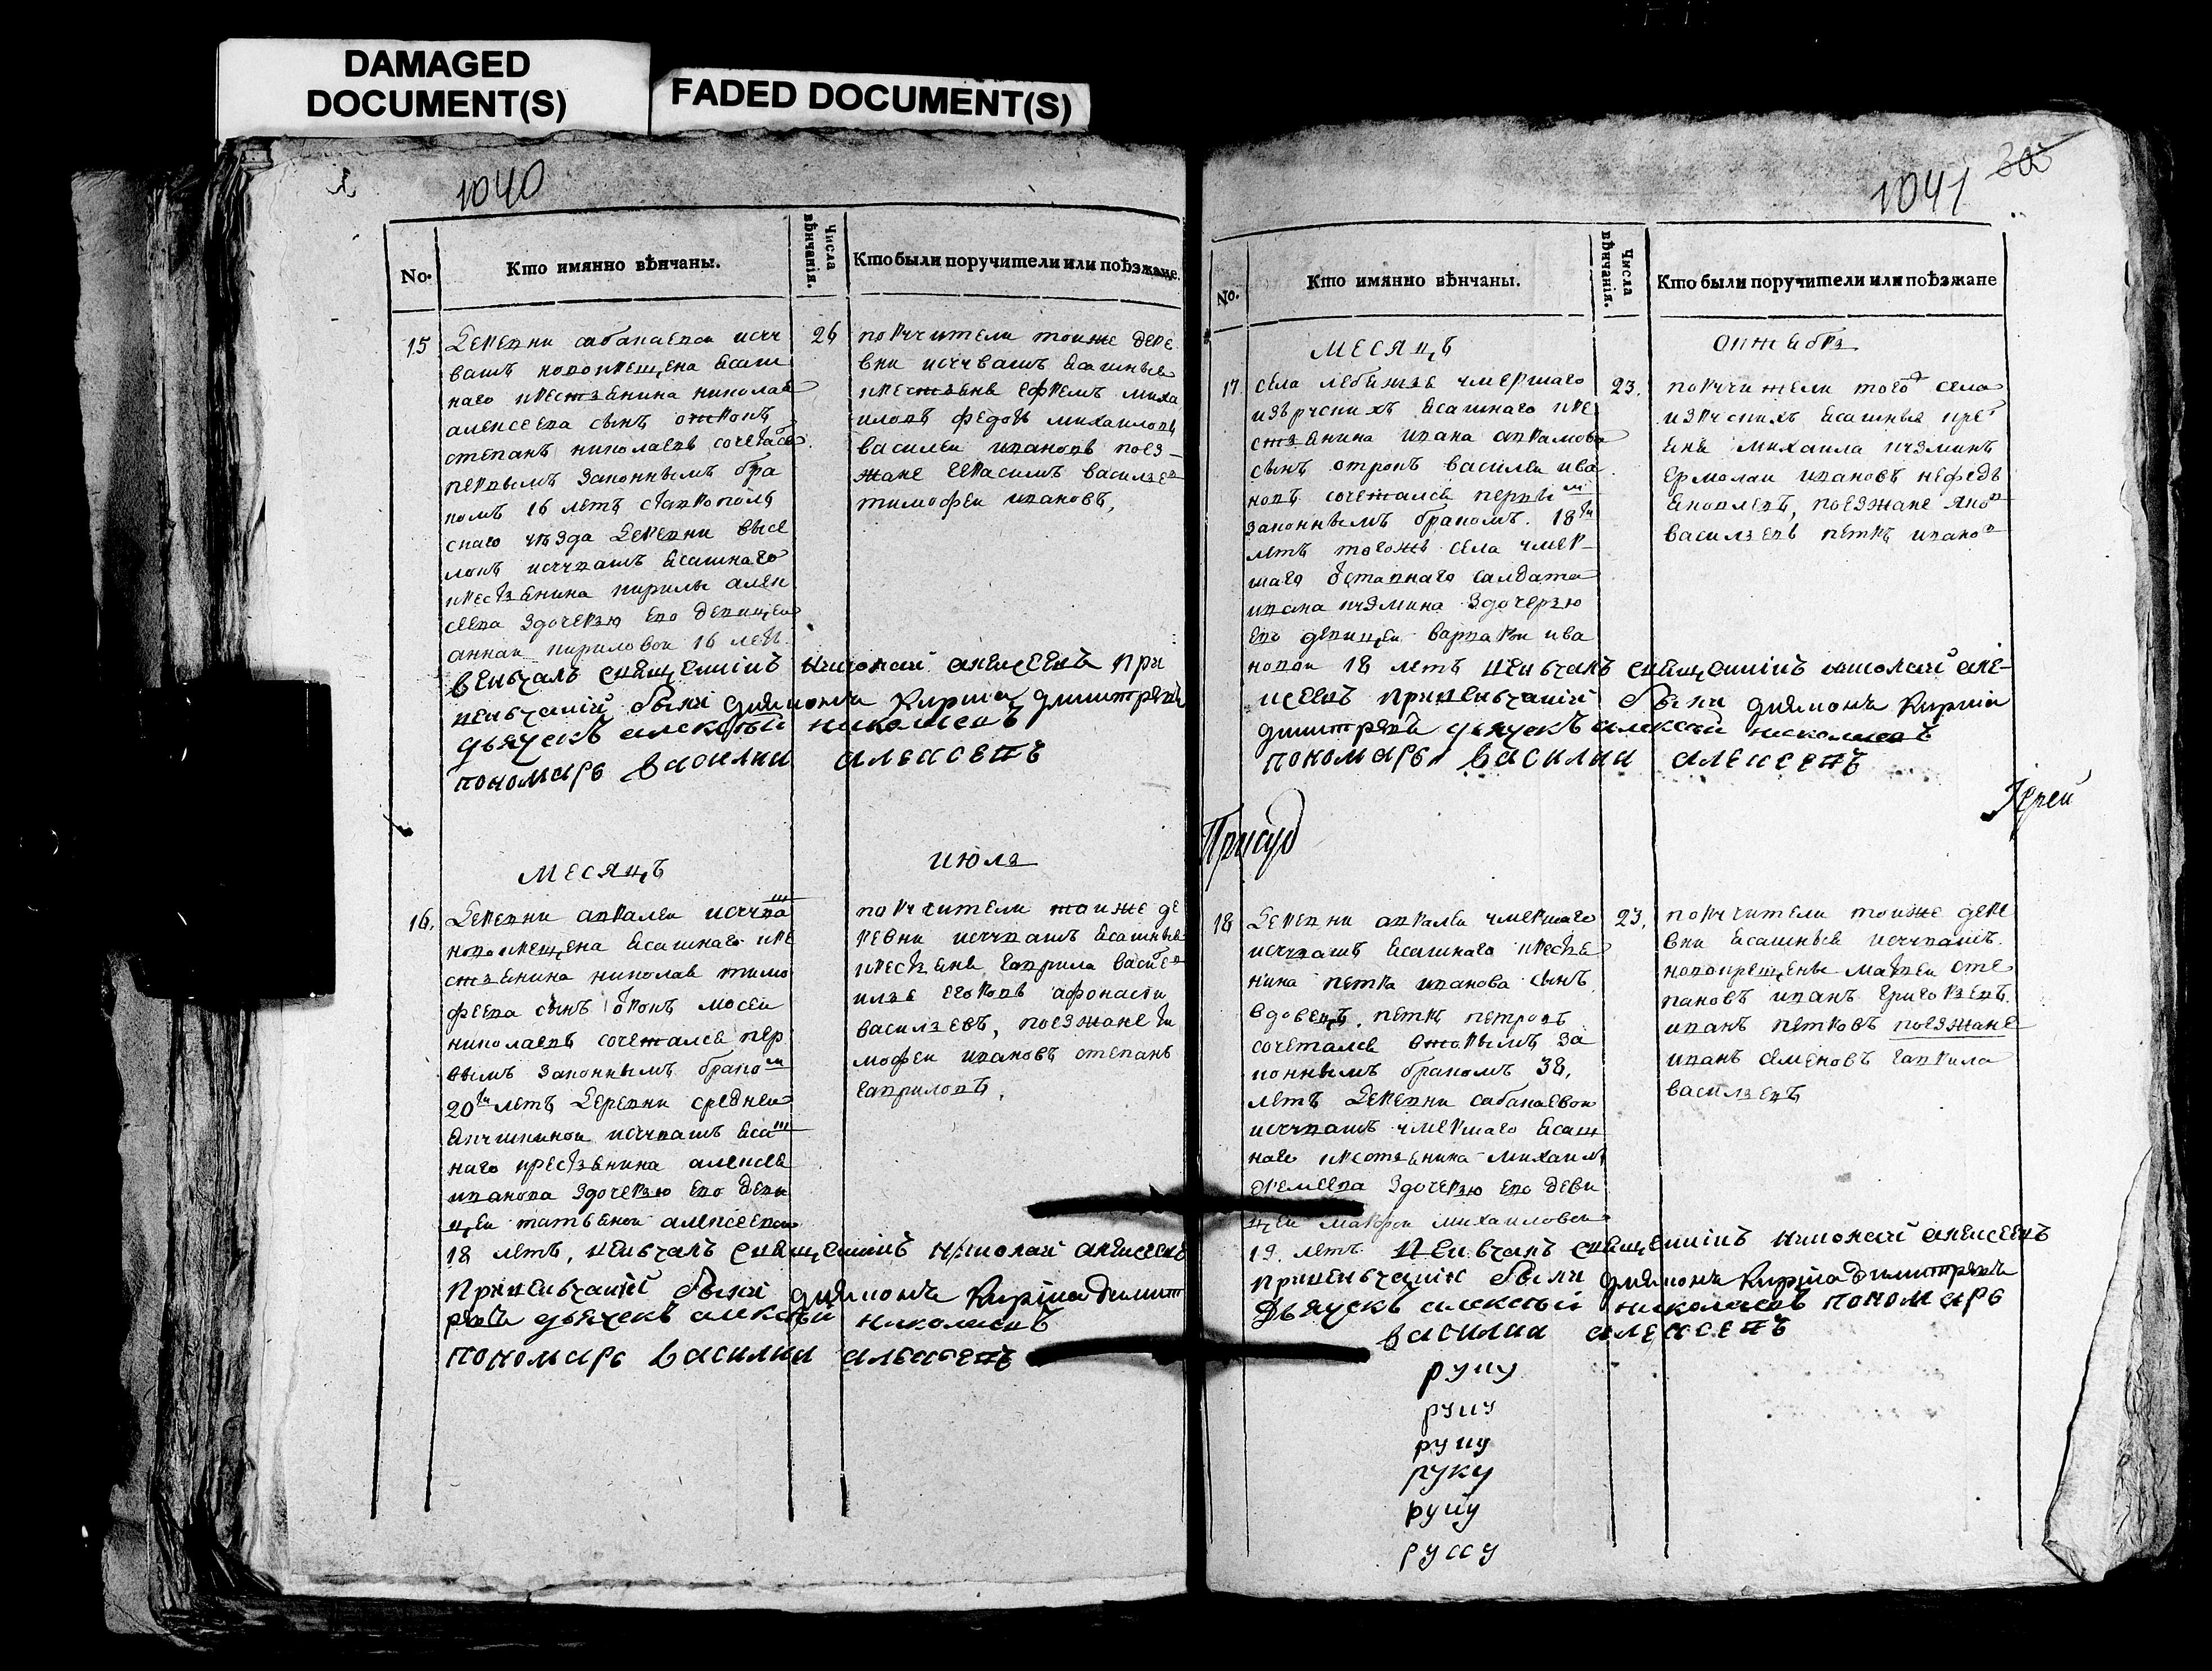 DAMAGED
DOCUMENT(S)
FADED DOCUMENT(S)
1040
No.
Кто имянно вѣнчаны.
Числа вѣнчанія.
Кто были поручители или поѣзжане.
15
26
деревни сабанаева исчу
вашъ новокрещена ясаш
наго крестьянина николая
алексеева сынъ отрокъ
степанъ николаевъ сочетася
первымъ законнымъ бра
комъ 16 летъ ставропол
скаго уѣзда деревни висе
локъ исчувашъ ясашнаго
крестьянина кирилы алек
сеева здочерью ево девицею
аннаи кириловои 16 летъ
поручители тоиже дере
вни исчувашъ ясашные
крестьяне ефремъ миха
иловъ федоръ михаиловъ
василеи ивановъ поез-
жане герасимъ васильев
тимофеи ивановъ,
веньчалъ священникъ николаи алексеевъ при
веньчании были диямонъ Кирила димитревъ
дьячекъ алексѣй николаевъ
пономарь василии алексеевъ
месяцъ июля
16.
деревни авралеи исчуваш
новокрещена ясашнаго кре
стьянина николая тимо
феева сынъ отрокъ мосеи
николаевъ сочетался пер
вымъ законнымъ браком
20ти летъ деревни среднеи
якушкинои исчувашъ ясаш
наго крестьянина алексея
иванова здочерью ево деви
цеи татьянои алексеевои
поручители тоиже де
ревни исчувашъ ясашные
крестьяне гаврила
илья егоровъ афонасеи
васильевъ, поезжане ти
мофеи ивановъ степанъ
гавриловъ,
18 летъ, веньчалъ священникъ николаи алексеевъ
привеньчании были диямонъ Кирила димит
ревъ дьячекъ алексѣй николаевъ
пономарь василии алексеевъ
1041
No.
Кто имянно вѣнчаны.
Числа вѣнчанія.
Кто были поручители или поѣзжане
месяцъ
17
23.
села лебяжья умершаго
изърускихъ ясашнаго кре
стьянина ивана аврамова
сынъ отрокъ василеи ива
новъ сочетался первым
законнымъ бракомъ. 18ти
летъ тогожъ села умер-
шаго отставнаго салдата
ивана кузмина здочерью
ево девицеи варварои ива
поручители того села
изрускихъ ясашныя кре
яня михаила кузминъ
ермолаи ивановъ нефедъ
яковлевъ, поезжане яков
васильевъ петръ иванов
новои 18 летъ веньчалъ священникъ николаи але-
ксеевъ привеньчании были диямонъ Кирила
димитревъ дьячекъ алексѣй николаевъ
пономарь василии алексеевъ
Іерей
18
23.
деревни авралеи умершаго
исчувашъ ясашнаго крестья
нина петра иванова сынъ
вдовецъ, петръ петровъ
сочетался вторымъ за
коннымъ бракомъ 38,
летъ деревни сабанаевои
исчувашъ умершаго ясаш
наго крестьянина михаила
еремеева здочерью ево деви
цеи маврои михаиловои
поручители тоиже дере
вни ясашныя исчувашъ.
новокрещены матвеи сте
пановъ иванъ григорьевъ.
иванъ петровъ поезжане
иванъ семеновъ гаврила
васильевъ
19. летъ. веньчалъ священникъ николаи алексеевъ
привеньчании были диямонъ Кирила димитревъ
дьячекъ алексѣй николаевъ пономарь
василии алексеевъ
руку
руку
руку
руку
руку
руку